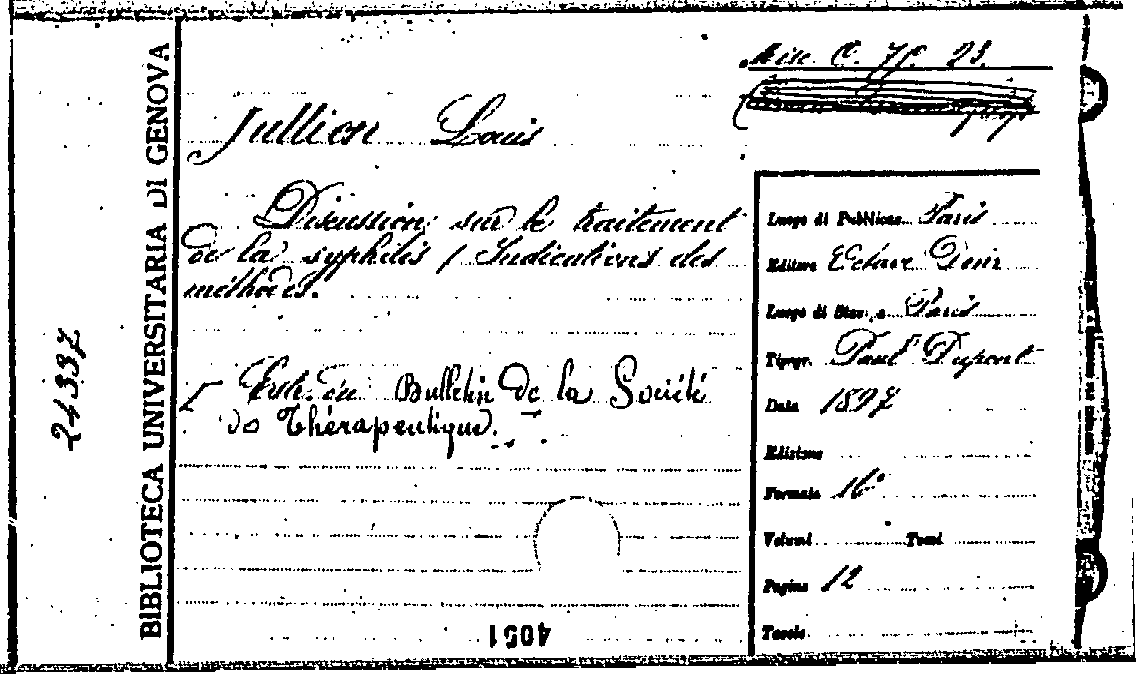 Misc. C. 78. 23.
Jullien Louis
Discussion sur le traitement
de la syphilis / Indications des
méthodes.
[ Estr. du Bulletin de la Société
de Thérapeutique.
Luogo di Pubblicaz. Paris
Editore Octave Doin
Luogo di Stampa Paris
Tipogr. Paul Dupont
Data 1897
Edizione
Formato 16°
Volumi Tomi
Pagine 12
Tavole
BIBLIOTECA UNIVERSITARIA DI GENOVA
24337
4051